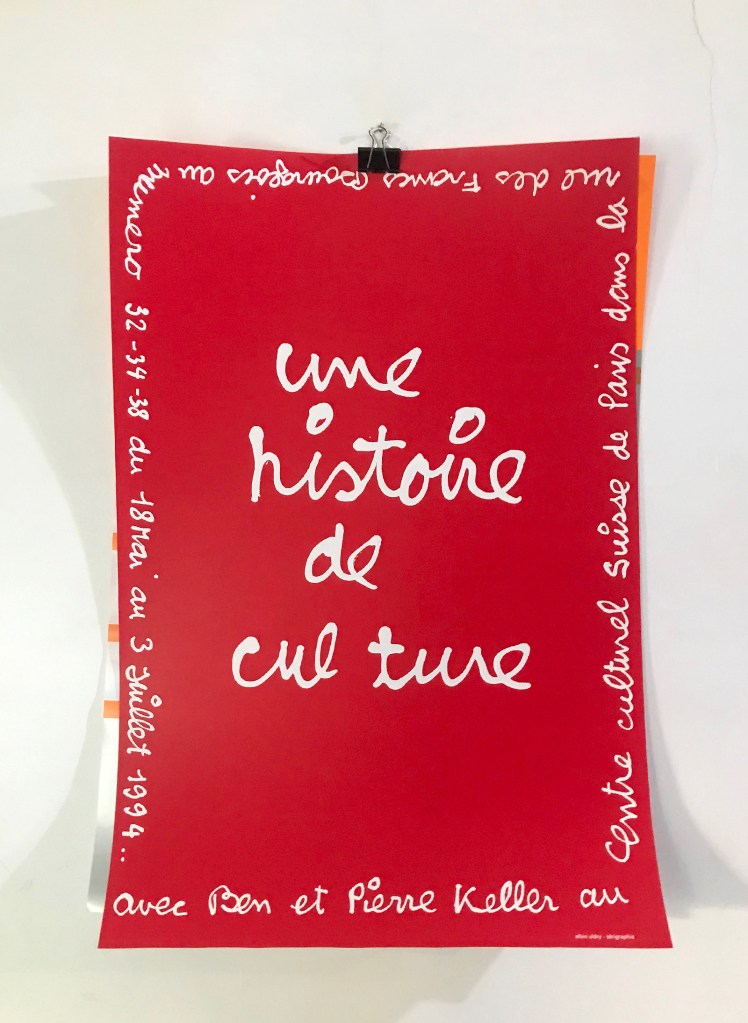 une
histoire
de
cul ture
avec Ben et Pierre Keller au
Centre culturel suisse de Paris dans la
rue des Francs Bourgeois au
numero 32-34-38 du 18 Mai au 3 Juillet 1994...
albin uldry - sérigraphie